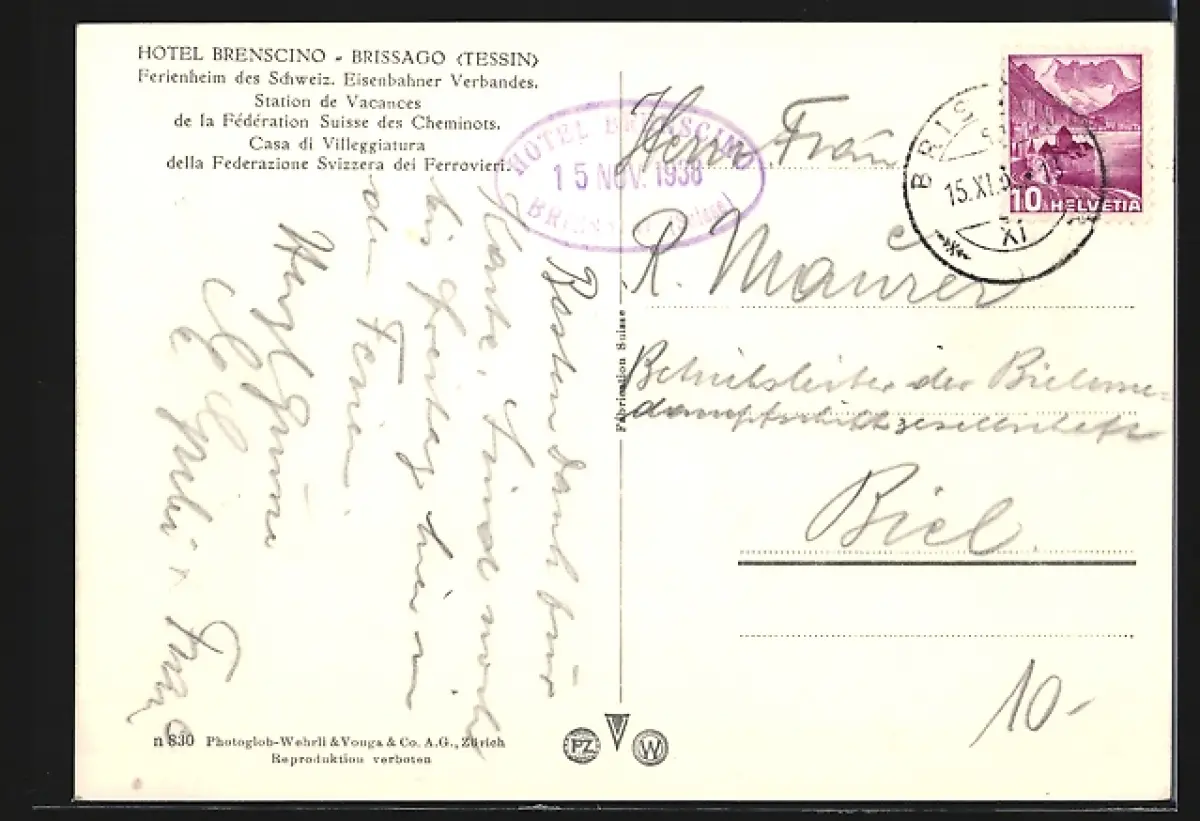 HOTEL BRENSCINO - BRISSAGO (TESSIN)
Ferienheim des Schweiz. Eisenbahner Verbandes.
Station de Vacances
de la Fédération Suisse des Cheminots.
Casa di Villeggiatura
della Federazione Svizzera dei Ferrovieri.
HOTEL BRENSCINO
15 NOV. 1938
BRISSAGO
BRISSAGO
15.XI.
XI
10 HELVETIA
Herr Frau
R. Maurer
Betriebsleiter der Bielersee-
dampfschiffgesellschaft
Biel
10-
Besten Dank für
Karte. Sind noch
bis Freitag hier in
den Ferien.
Herzl. Grüsse
Frau
Fabrication Suisse
n 830 Photoglob-Wehrli & Vouga & Co. A.G., Zürich
Reproduktion verboten
PZ W